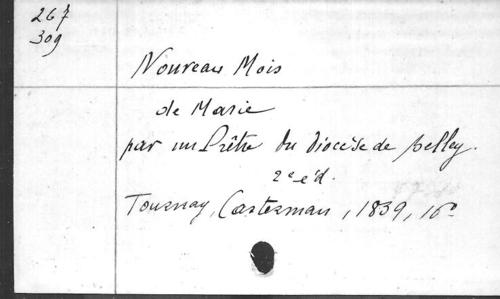 267
309
Nouveau Mois
de Marie
par un Prêtre du diocèse de Belley.
2e éd.
Tournay, Casterman, 1839, 16°